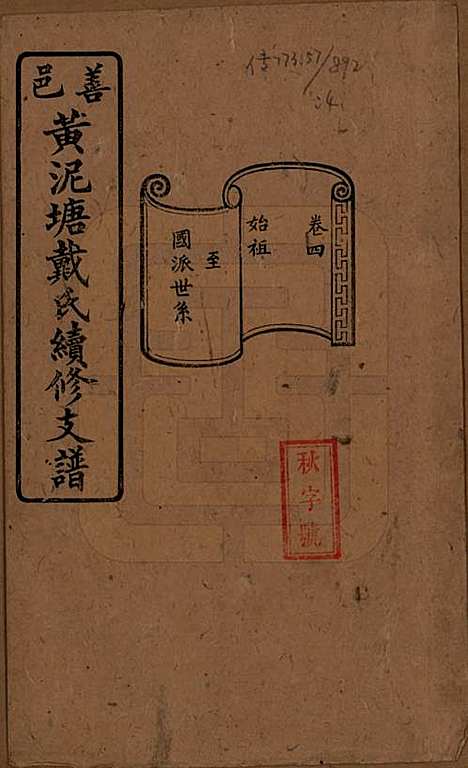 善邑
黃泥塘戴氏續修支譜
卷四
始祖
至
國派世系
秋字號
773157/892